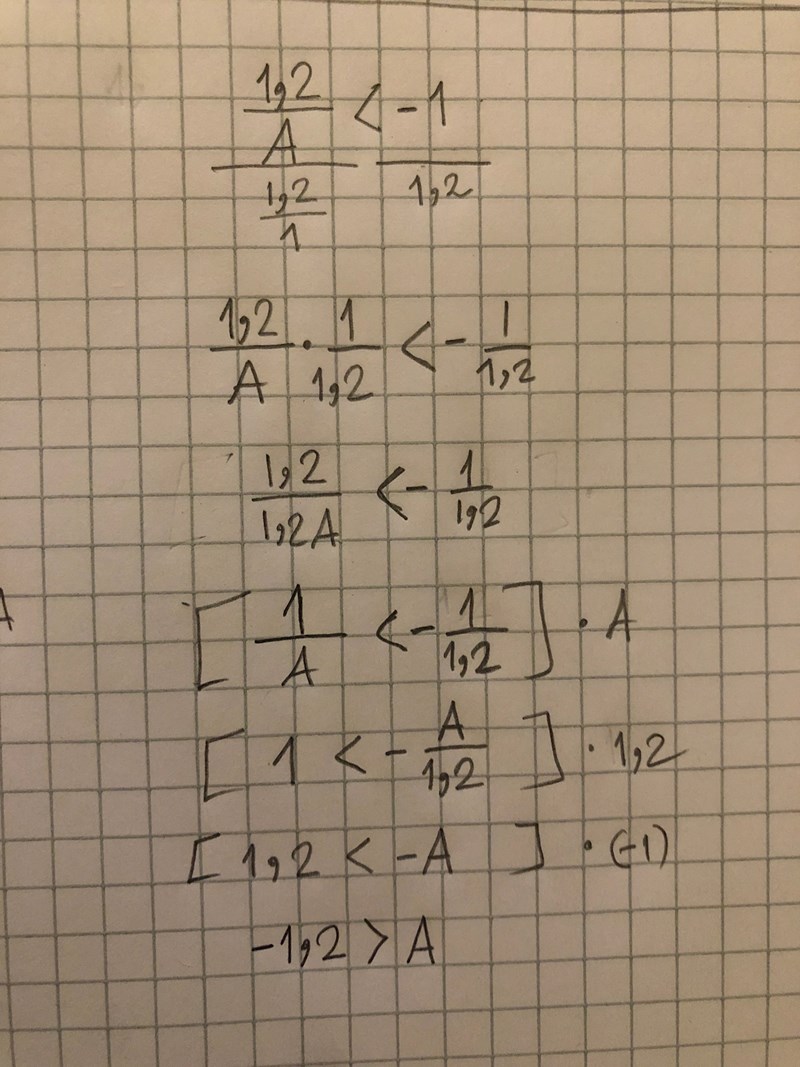 1,2/A < -1
1,2/1 1,2
1,2/A · 1/1,2 < - 1/1,2
1,2/1,2A < - 1/1,2
[ 1/A < - 1/1,2 ] · A
[ 1 < - A/1,2 ] · 1,2
[ 1,2 < -A ] · (-1)
-1,2 > A